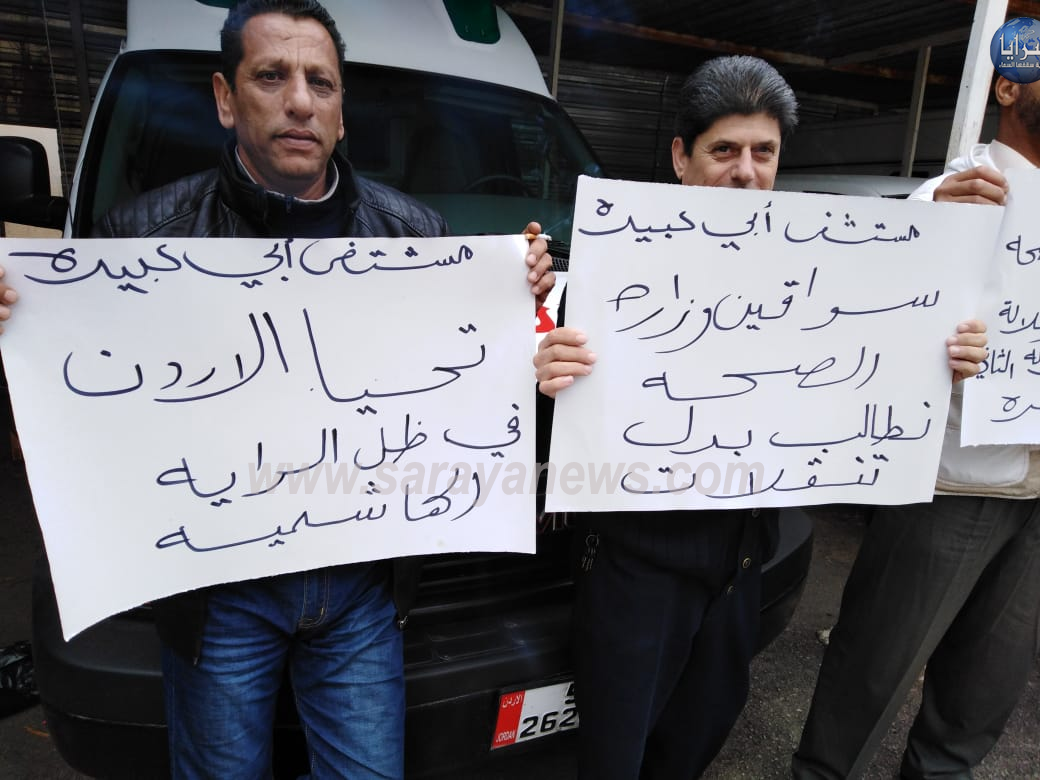 مستشفى أبي عبيده
تحيا الاردن
في ظل الرايه
الهاشميه
مستشفى أبي عبيده
سواقين وزاره
الصحه
نطالب بدل
تنقلات
الثاني
www.sarayanews.com
الاردن
JORDAN
262
سرايا